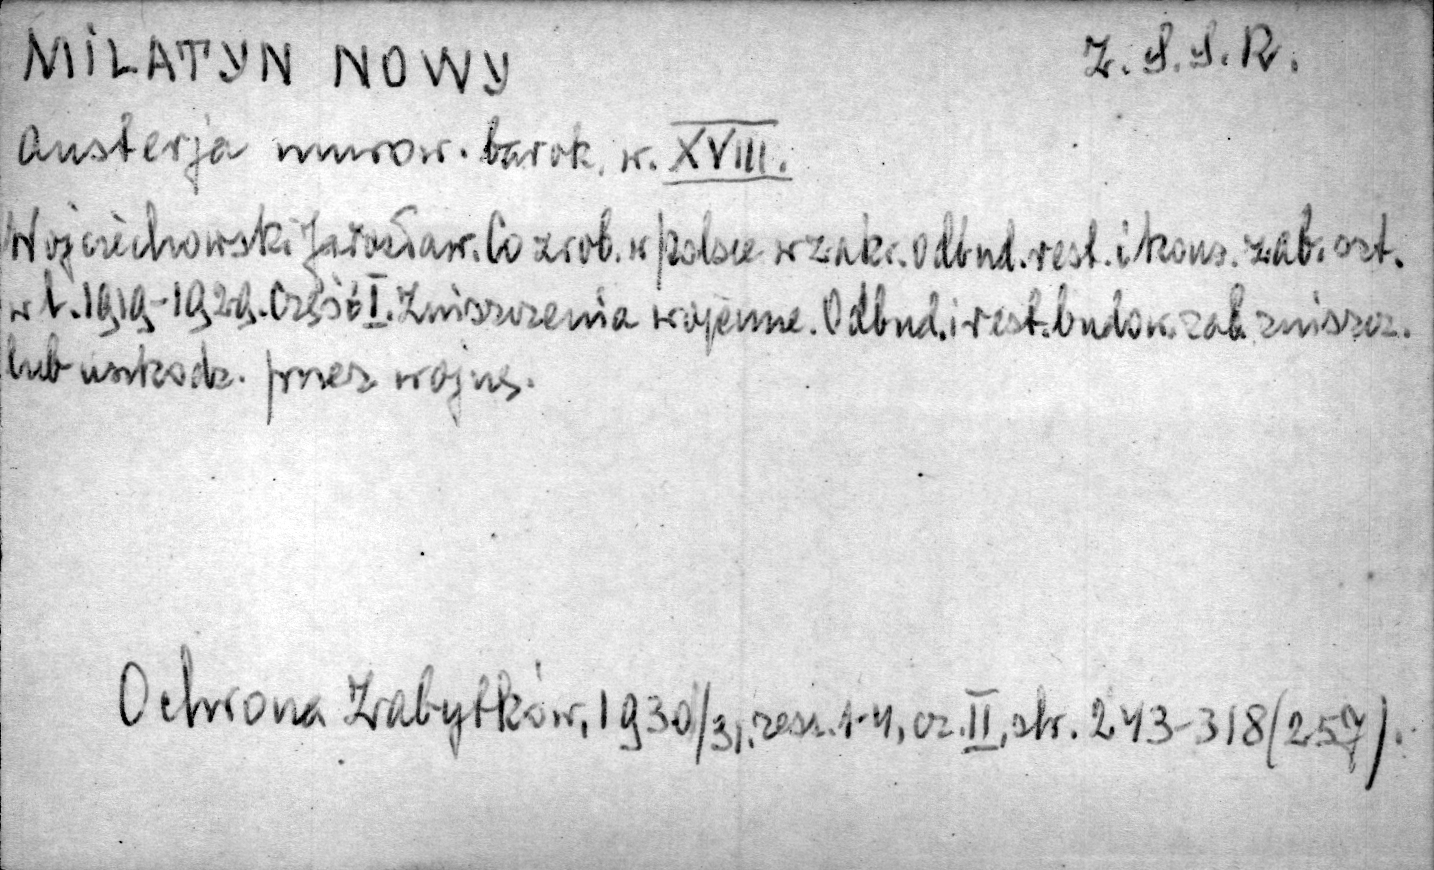 MILATYN NOWY
Z.S.S.R.
austerja murow. barok. w. XVIII.
Wojciechowski Jarosław. Co zrob. w Polsce w zakr. odbud. rest. i kons. zab. szt.
w l. 1919-1929. Część I. Zniszczenia wojenne. Odbud. i rest. budow. zab. zniszcz.
lub uszkodz. przez wojnę.
Ochrona Zabytków, 1930/31, zesz. 1-4, cz. II, str. 243-318 (257).